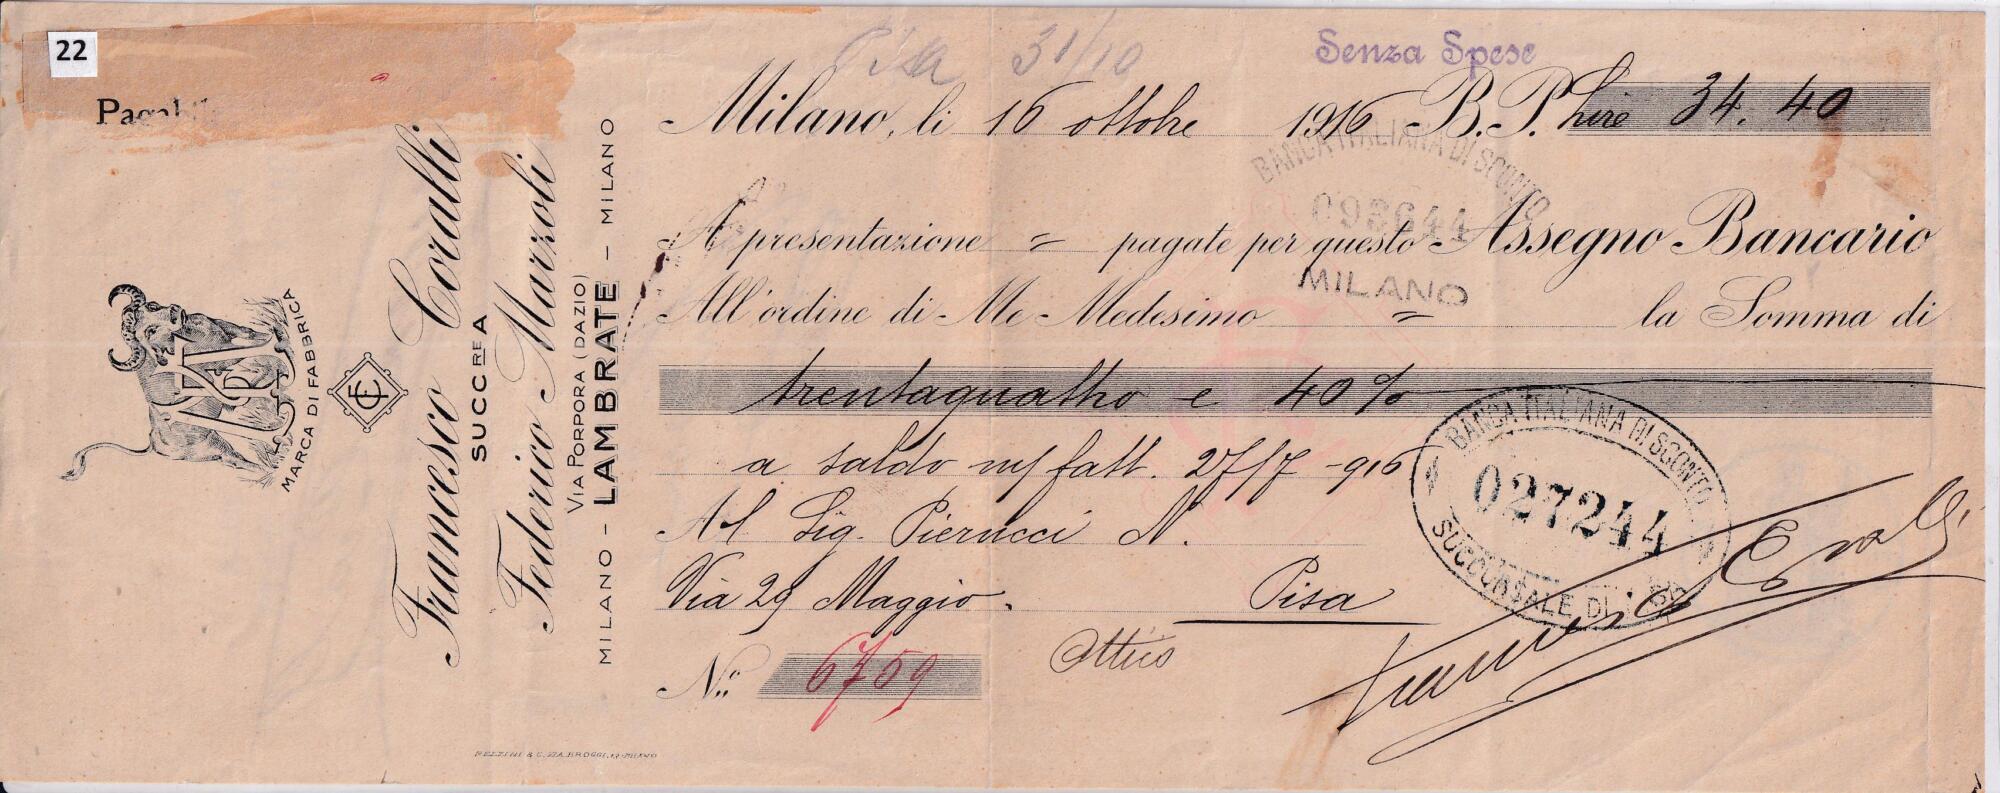 22
Pisa 31/10
Senza Spese
Pagabile
Milano, li 16 ottobre 1916 B.P. Lire 34.40
BANCA ITALIANA DI SCONTO
098644
MILANO
A presentazione = pagate per questo Assegno Bancario
All'ordine di Me Medesimo = la Somma di
trentaquattro e 40%
a saldo m/ fatt. 27/7-916
Al Sig. Pierucci N.
Via 29 Maggio. Pisa
No. 6759
BANCA ITALIANA DI SCONTO
027244
SUCCURSALE DI
Francesco Coralli
SUCCRE A
Federico Marzoli
VIA PORPORA (DAZIO)
MILANO - LAMBRATE - MILANO
MARCA DI FABBRICA
FC
PELZINI & C. VIA BROGGI, 19-MILANO